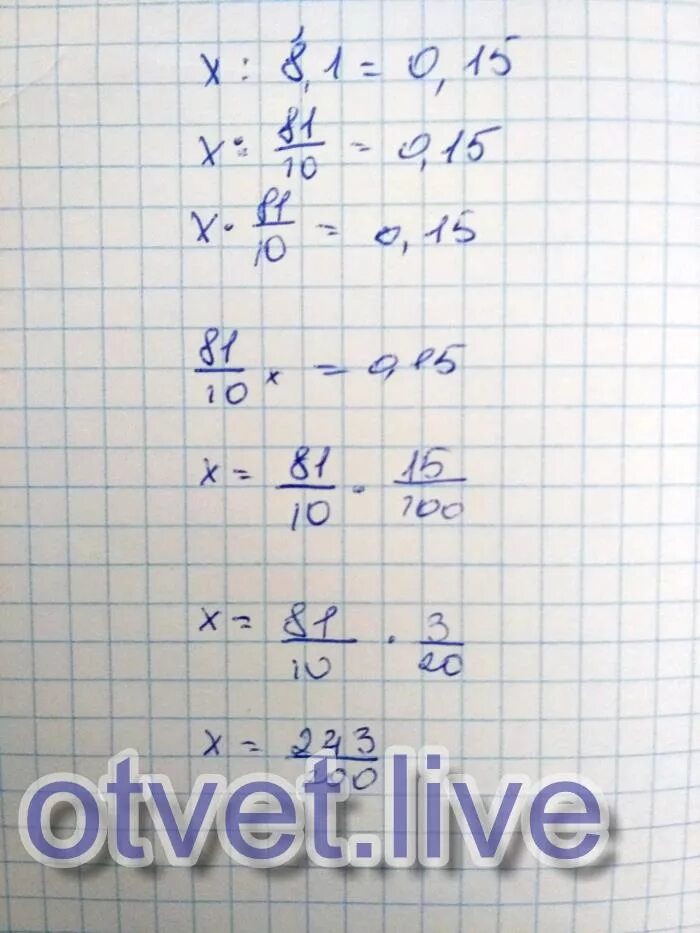 x : 8,1 = 0,15
x : 81/10 = 0,15
x · 81/10 = 0,15
81/10 x = 0,15
x = 81/10 · 15/100
x = 81/10 · 3/20
x = 243/200
otvet.live